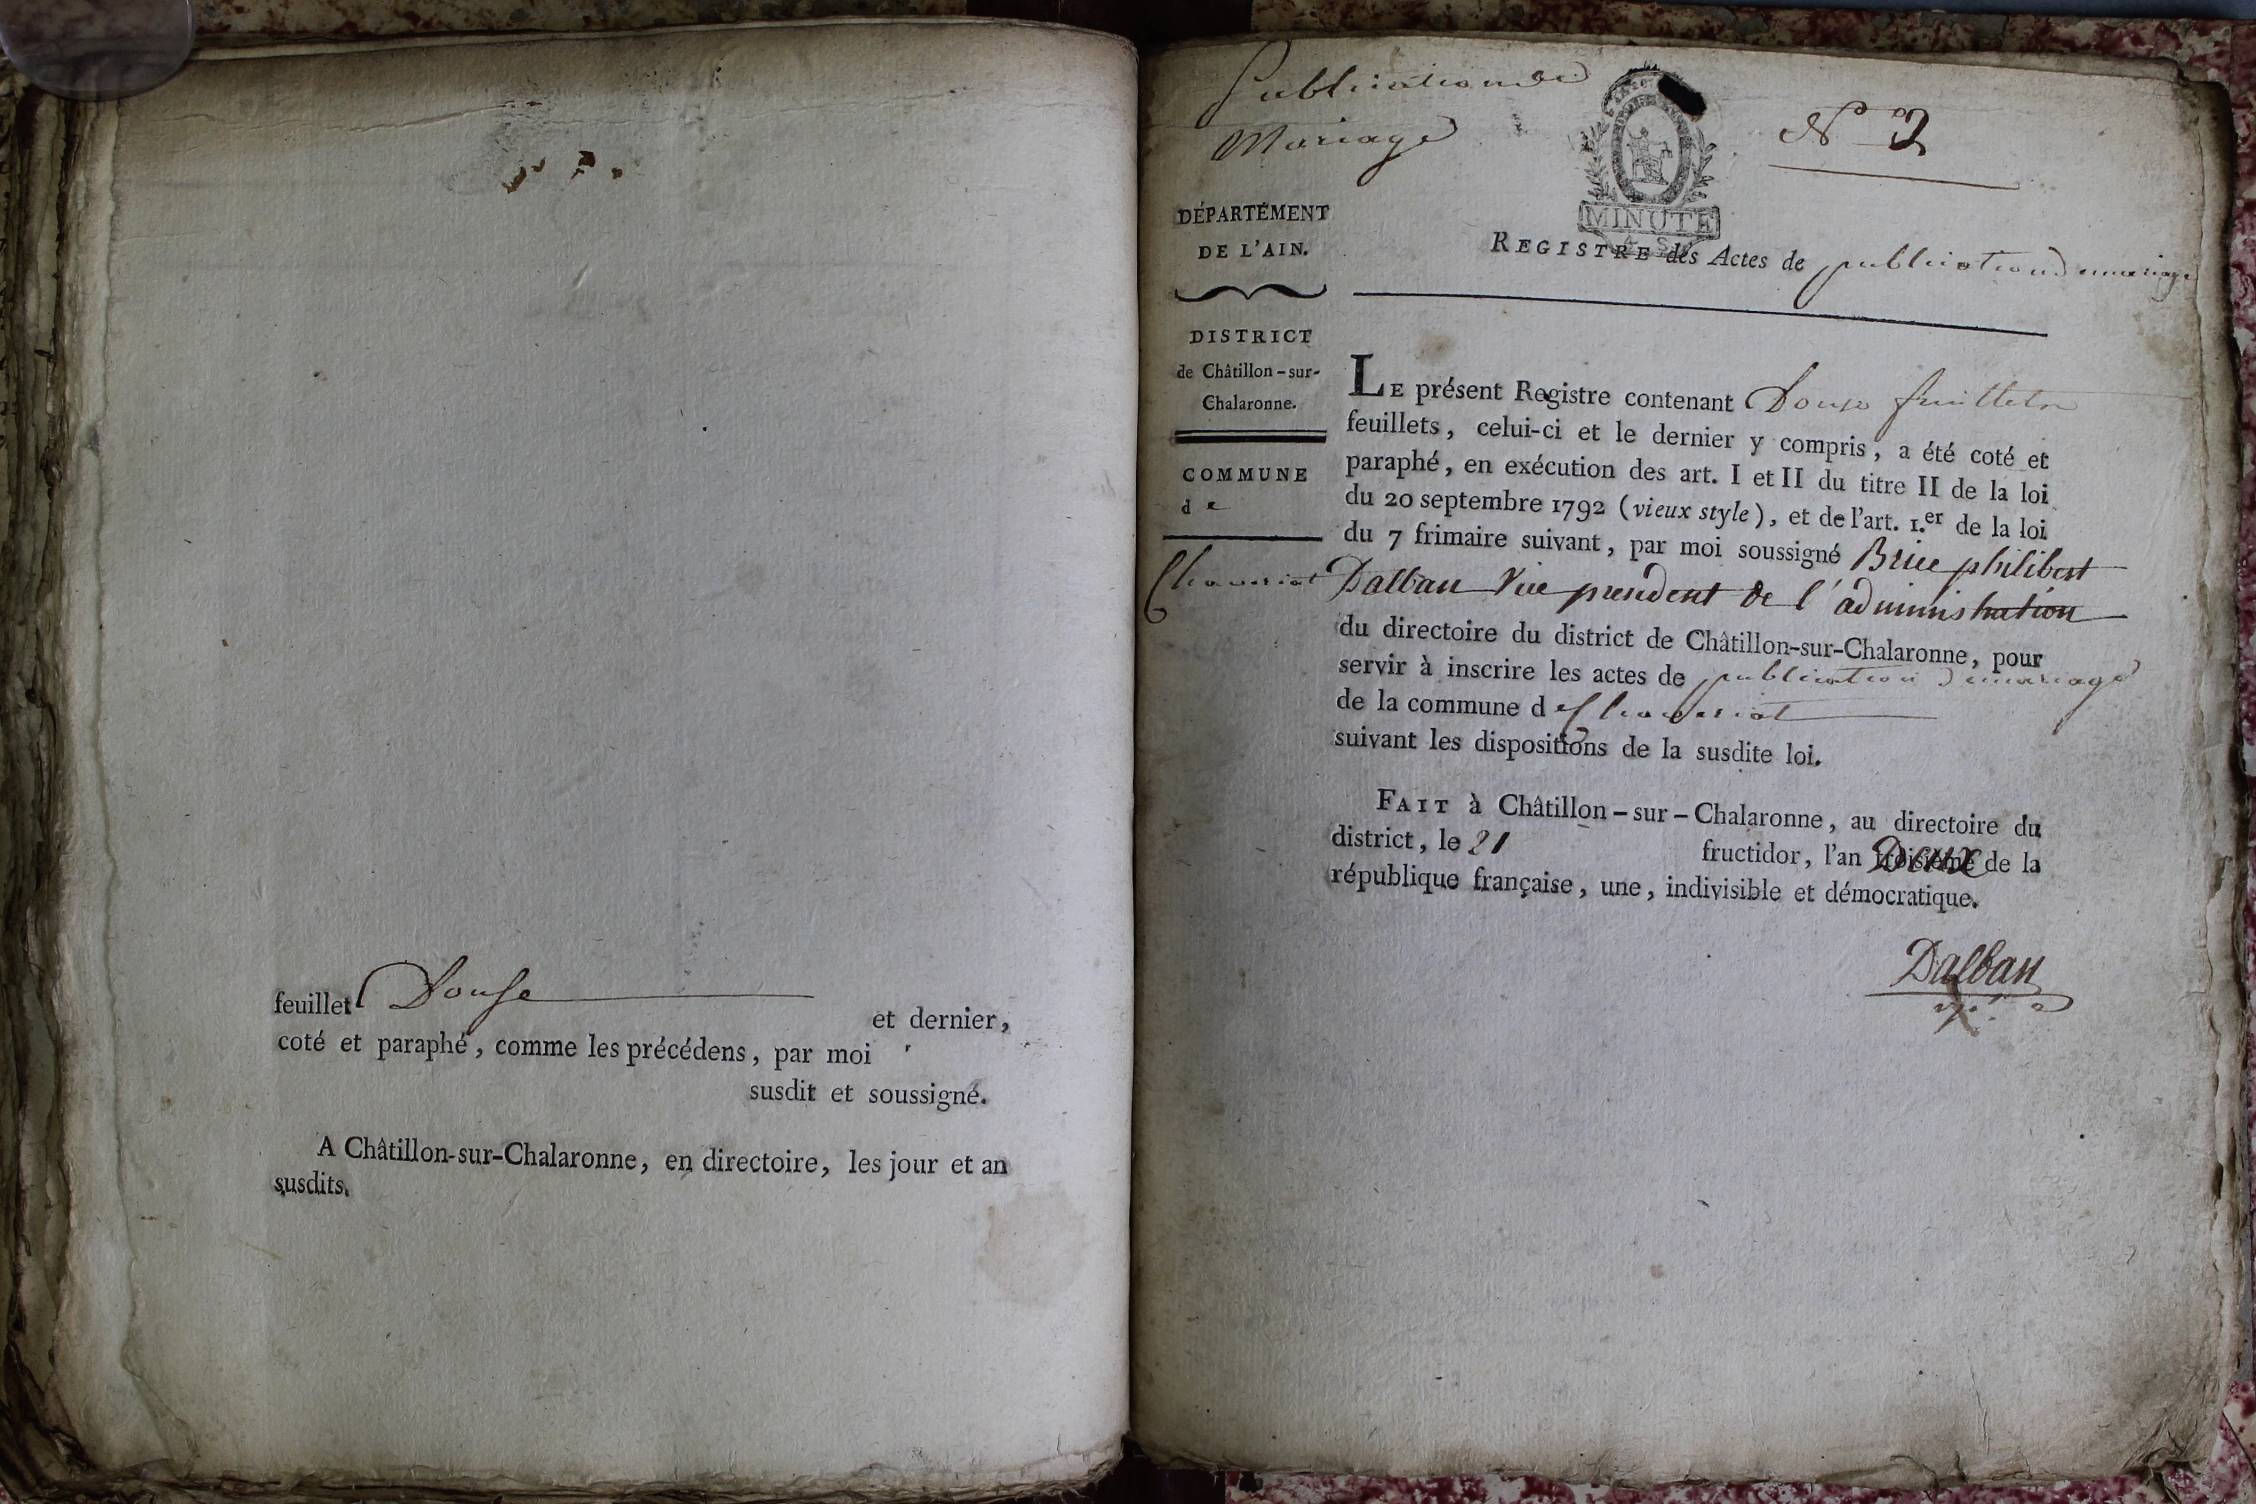 feuillet Douse et dernier,
coté et paraphé, comme les précédens, par moi
susdit et soussigné.
A Châtillon-sur-Chalaronne, en directoire, les jour et an
susdits.
Publication de
Mariage
N° 2
MINUTE
DÉPARTEMENT
DE L'AIN.
DISTRICT
de Châtillon-sur-
Chalaronne.
COMMUNE
de
Chaveriat
REGISTRE des Actes de publication de mariage
LE présent Registre contenant Douse feuillets
feuillets, celui-ci et le dernier y compris, a été coté et
paraphé, en exécution des art. I et II du titre II de la loi
du 20 septembre 1792 (vieux style), et de l'art. 1.er de la loi
du 7 frimaire suivant, par moi soussigné Brice philibert
Dalban Vice president de l'administration
du directoire du district de Châtillon-sur-Chalaronne, pour
servir à inscrire les actes de publication de mariage
de la commune de Chaveriat
suivant les dispositions de la susdite loi.
FAIT à Châtillon-sur-Chalaronne, au directoire du
district, le 21 fructidor, l'an Deux de la
république française, une, indivisible et démocratique.
Dalban